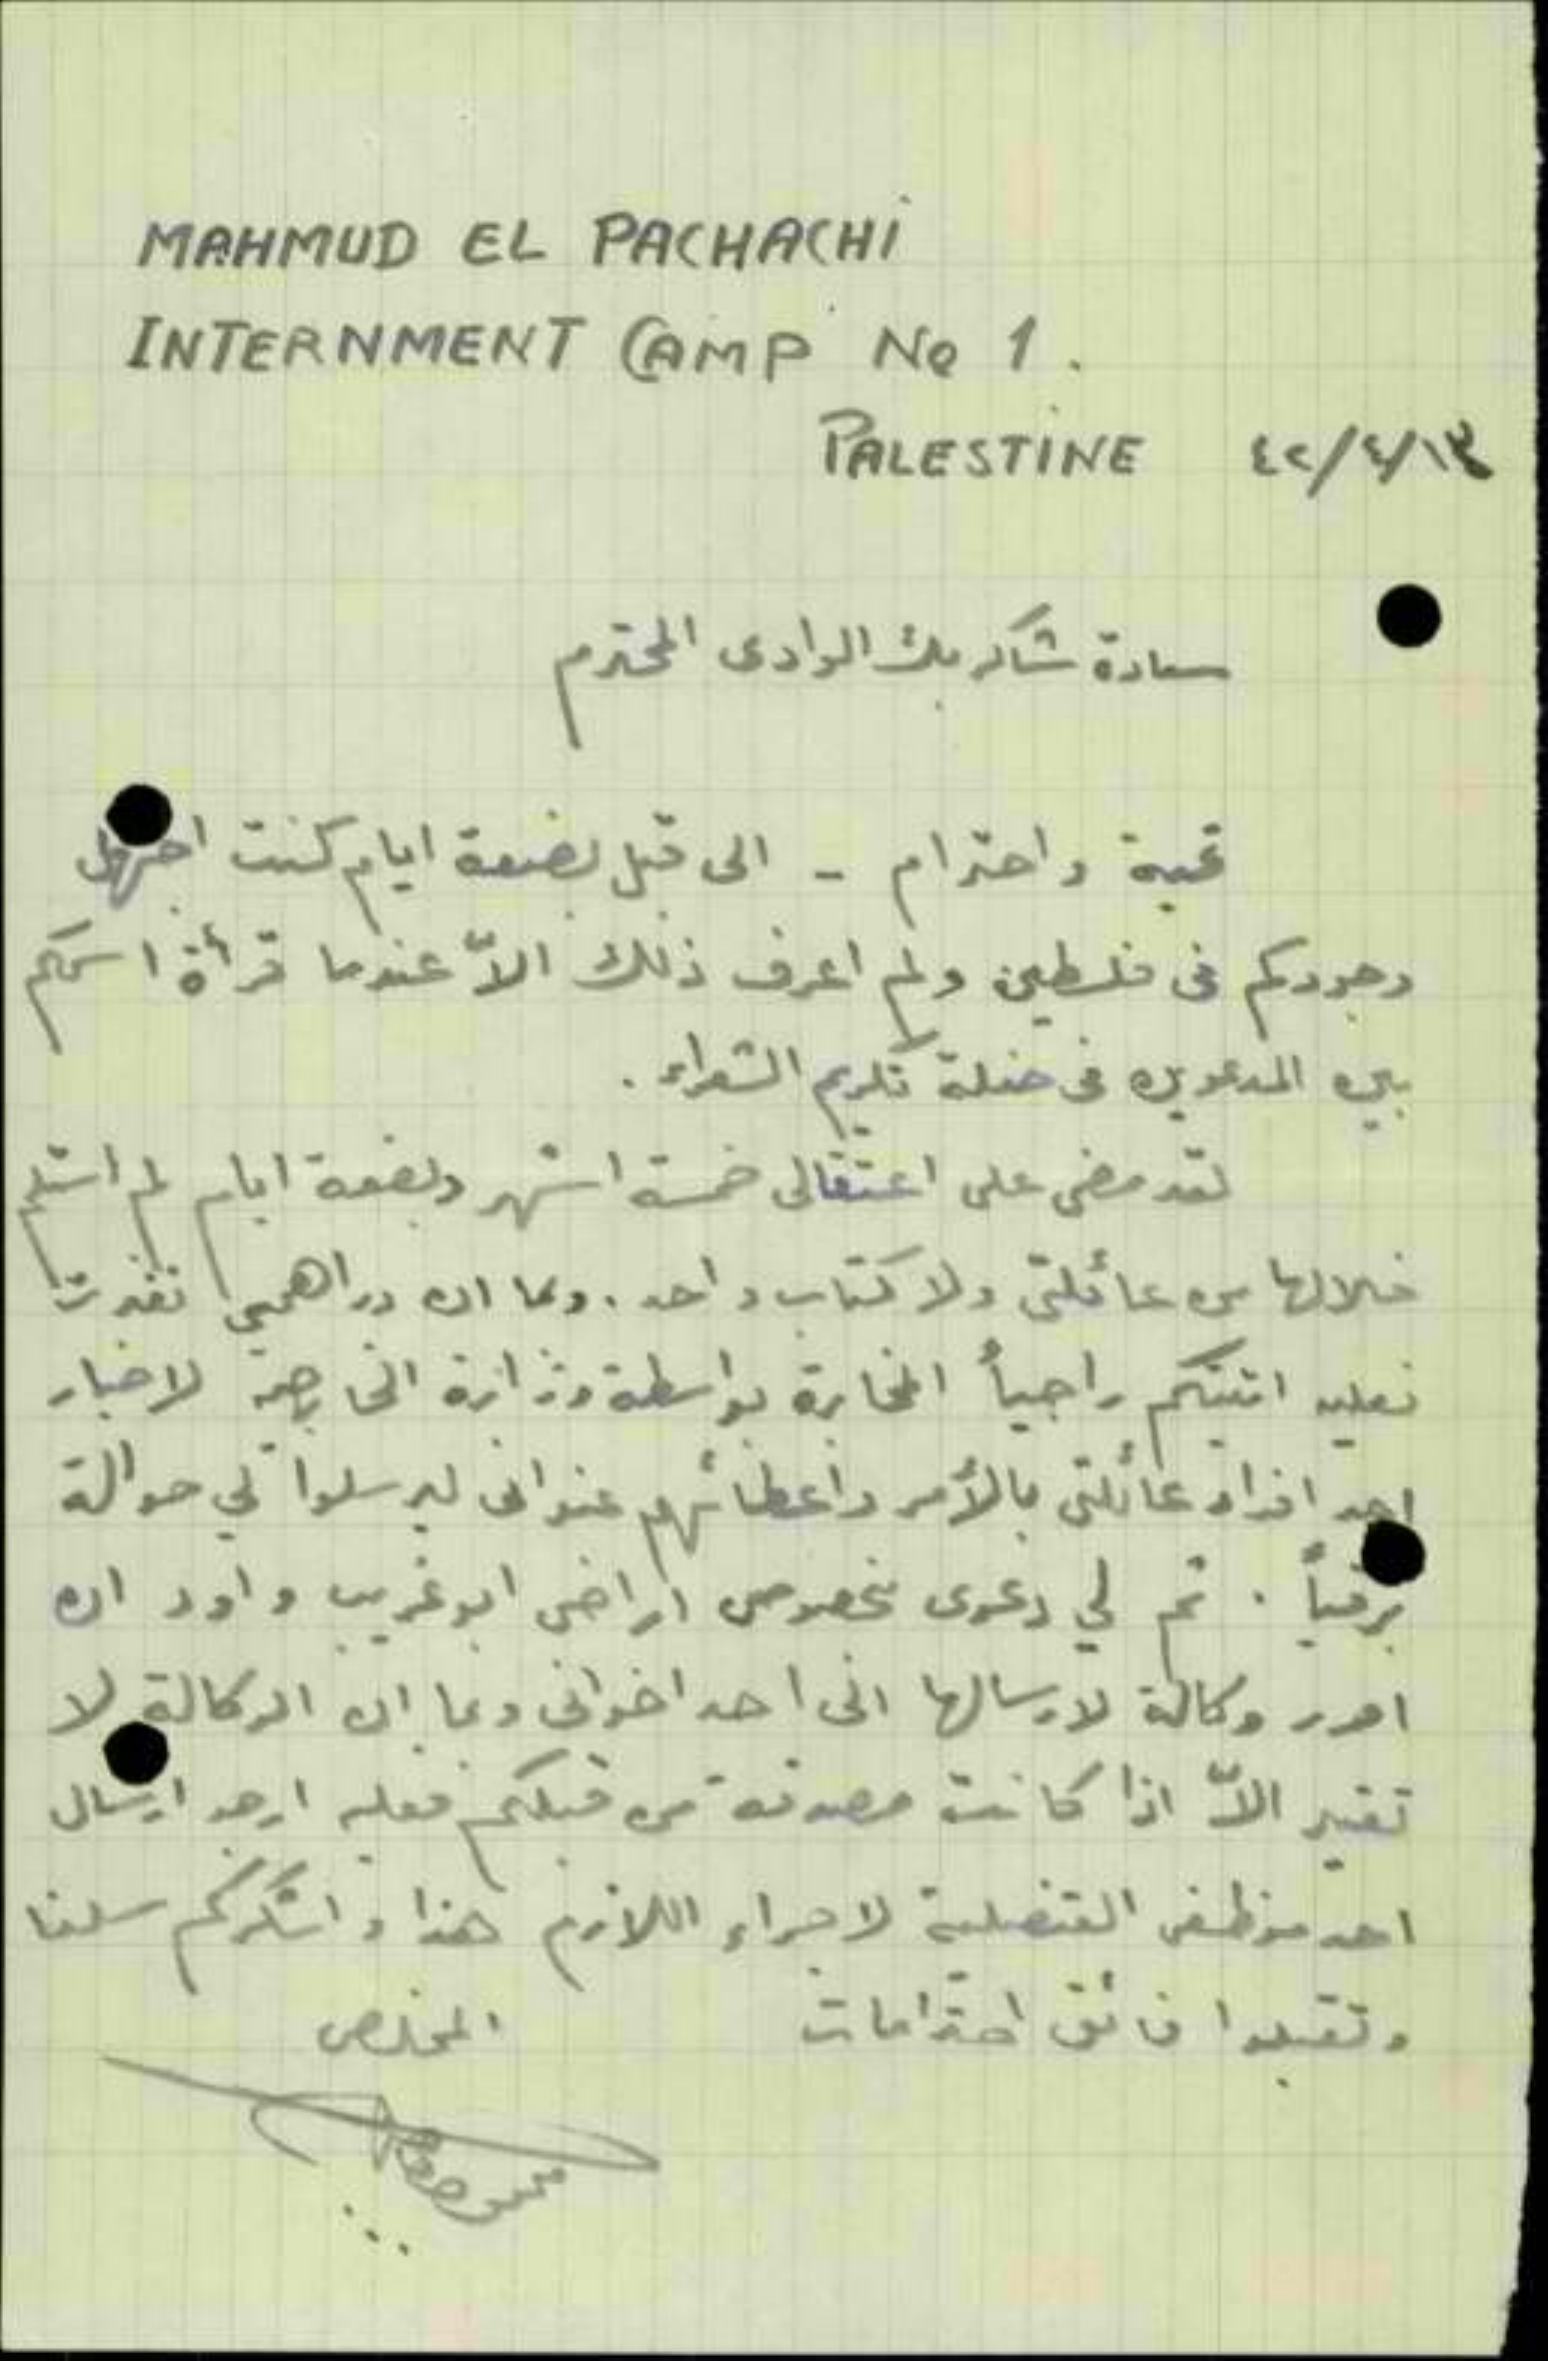 MAHMUD EL PACHACHI
INTERNMENT CAMP No 1.
PALESTINE ٤٢/٤/١٣
سعادة شاكر بك الوادى المحترم
تحية واحترام - الى قبل بضعة ايام كنت اجهل
وجودكم فى فلسطين ولم اعرف ذلك الاّ عندما قرأة اسمكم
بين المدعوين فى حفلة تكريم الشعراء.
لقد مضى على اعتقالى خمسة اشهر وبضعة ايام لم استلم
خلالها من عائلتى ولا كتاب واحد. وبما ان دراهمي نفدت
فعليه اتيتكم راجياً المخابرة بواسطة وزارة الخارجية لاخبار
احد افراد عائلتى بالأمر واعطائهم عنوانى ليرسلوا لي حوالة
برقياً. ثم لي دعوى بخصوص اراضى ابو غريب واود ان
احرر وكالة لارسالها الى احد اخوانى وبما ان الوكالة لا
تعتبر الاّ اذا كانت مصدقة من قبلكم فعليه ارجو ارسال
احد موظفى القنصلية لاجراء اللازم هذا واشكركم سلفا
وتقبلوا فائق احترامات المخلص
محمود